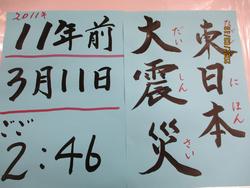 2011年
11年前
3月11日
ごご
2:46
東日本
ひがし に ほん
大震災
だい しん さい